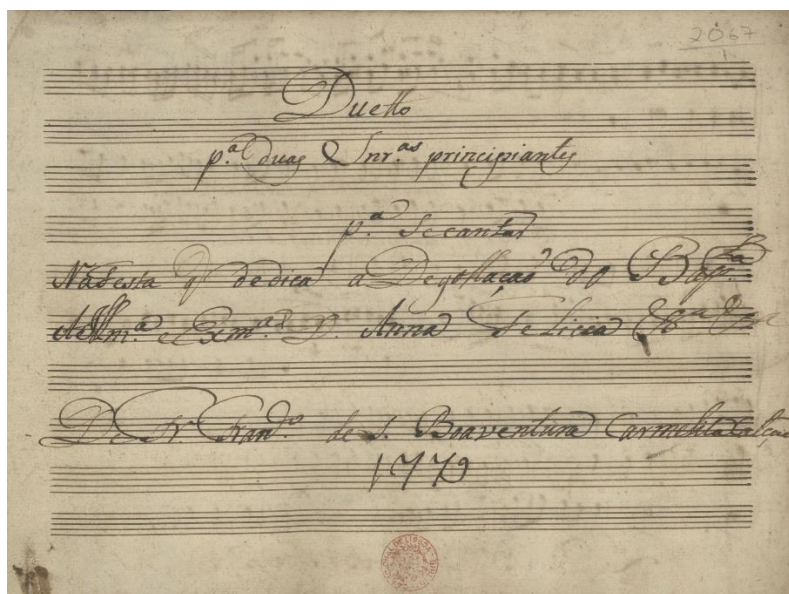 2067
Duetto
p.ª duas Snr.as principiantes
p.ª se cantar
Na festa q dedica a Degollaçaõ do Bap.ta
A Illm.ª e Exm.ª D. Anna Felicia
De Fr. Fran.co de S. Boaventura Carmelita Calçado
1779